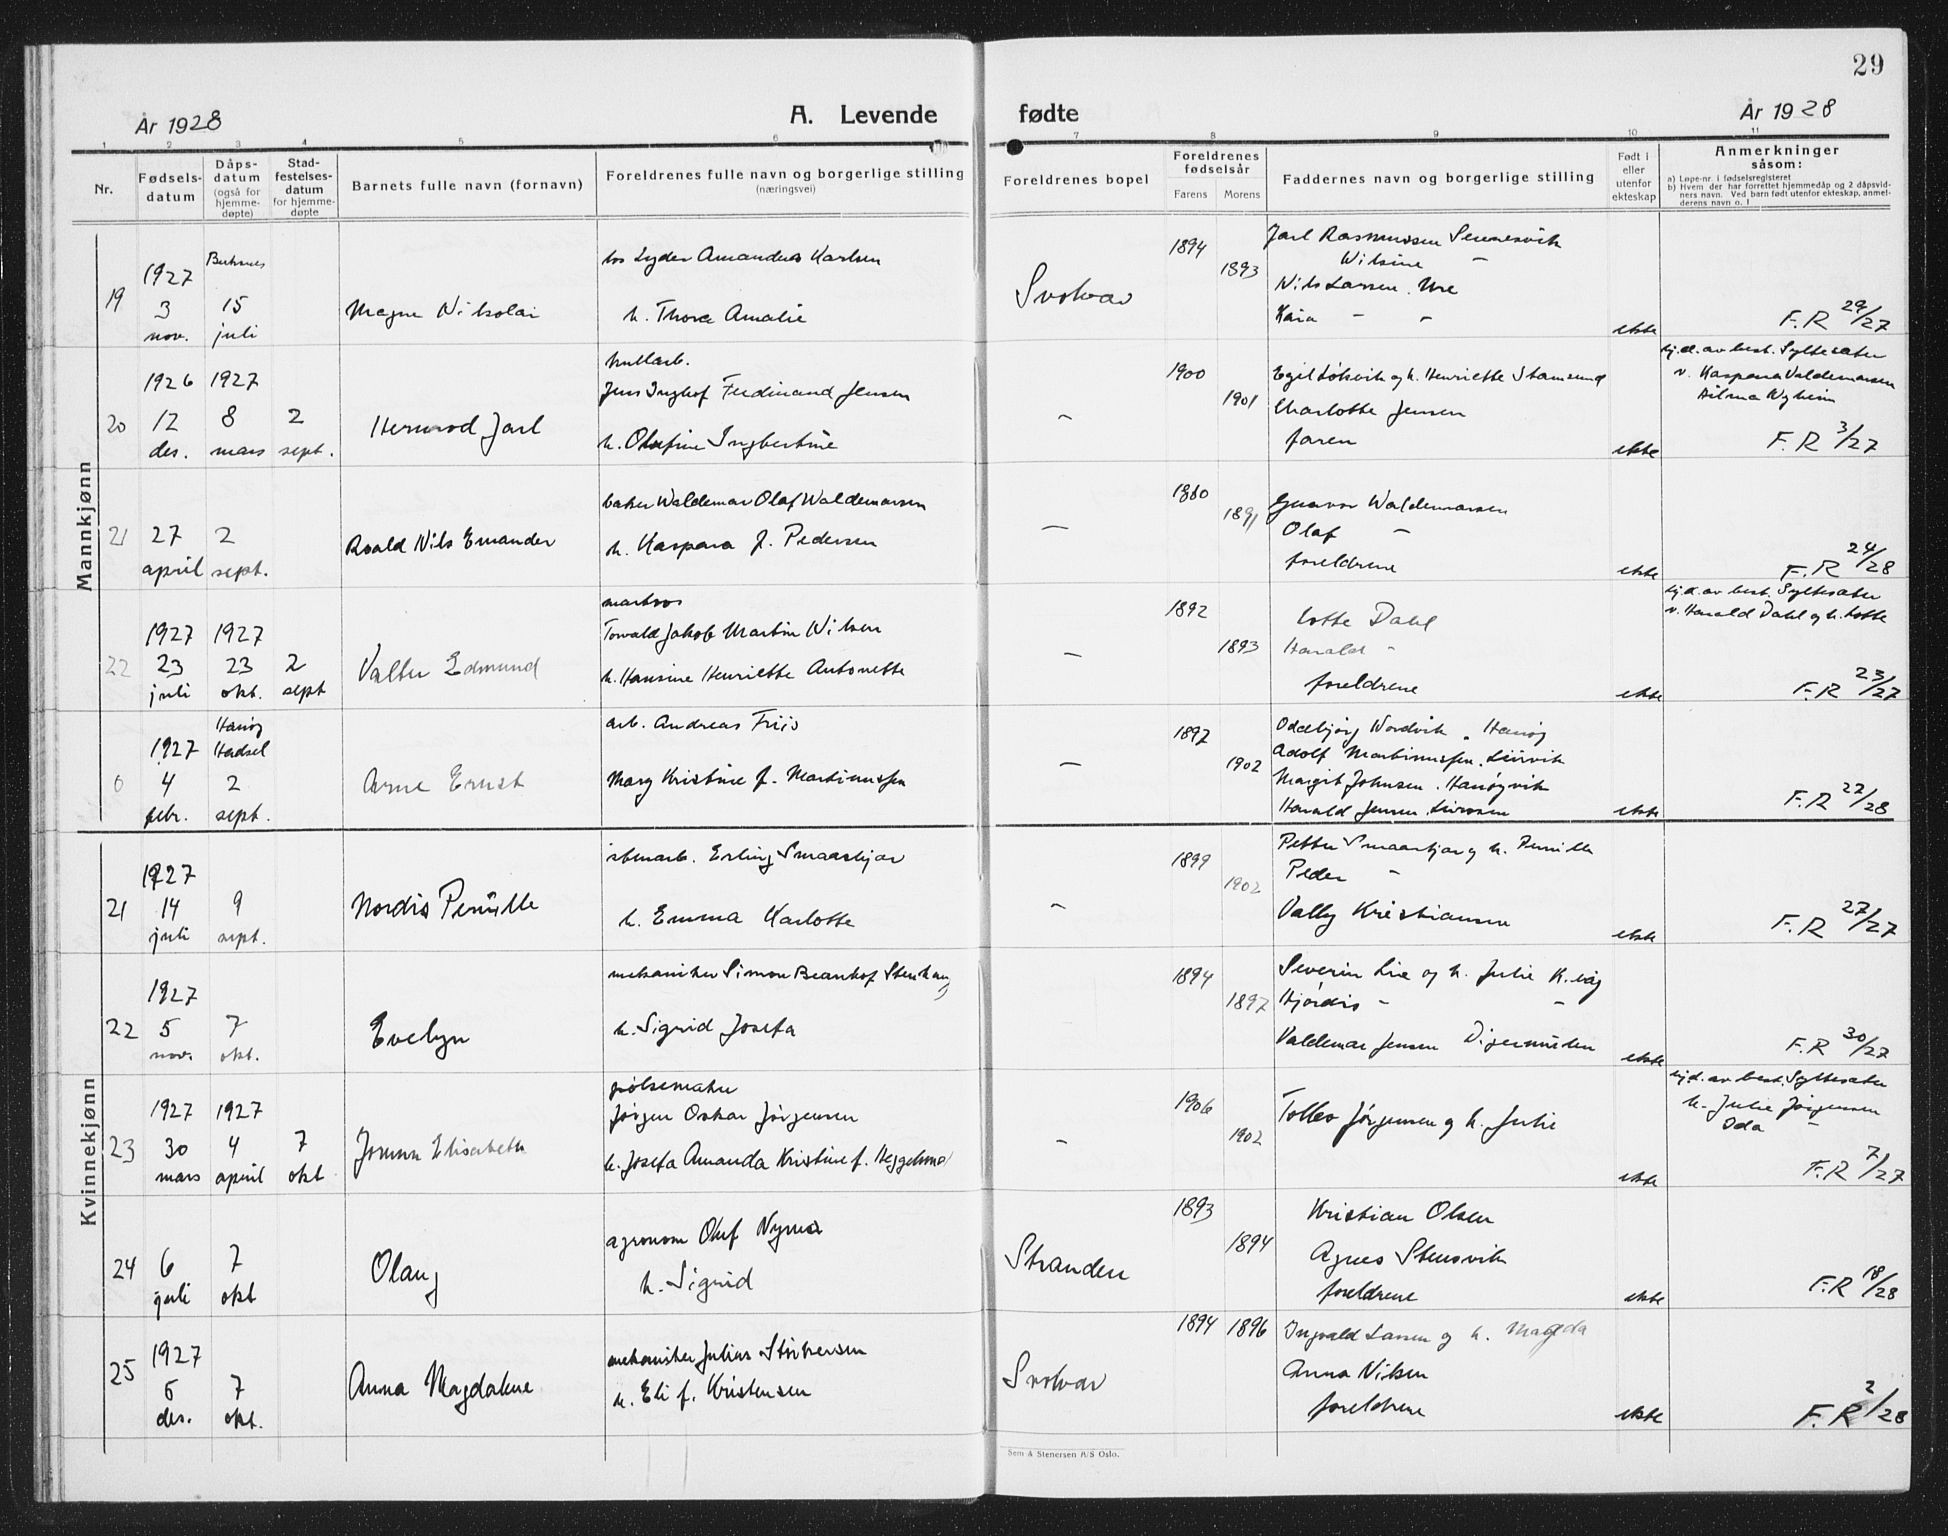 29
År 1928
A. Levende
fødte
År 1928
1 2 3 4 5 6 7 8 9 10 11
Nr.
Fødsels-
datum
Dåps-
datum
(også for
hjemme-
døpte)
Stad-
festelses-
datum
for hjemme-
døpte
Barnets fulle navn (fornavn)
Foreldrenes fulle navn og borgerlige stilling
(næringsvei)
Foreldrenes bopel
Foreldrenes
fødselsår
Farens Morens
Faddernes navn og borgerlige stilling
Født i
eller
utenfor
ekteskap
Anmerkninger
såsom:
a) Løpe-nr. i fødselsregisteret
b) Hvem der har forrettet hjemmedåp og 2 dåpsvid-
ners navn. Ved barn født utenfor ekteskap, anmel-
derens navn o. l.
Mannkjønn
19
1927
3
nov.
Buksnes
15
juli
Magne Nikolai
los Lyder Amandus Karlsen
h. Thora Amalie
Svolvær
1894
1893
Jarl Rasmussen Sennesvik
Wilsine -
Nils Larsen. Ure
Kaia - -
ekte
F.R 29/27
20
1926
12
des.
1927
8
mars
2
sept.
Hermod Jarl
Jens Inghof Ferdinand Jensen
h. Olufine Ingbertine
-
1900
1901
Egil Løkvik og h. Henriette Stamsund
Charlotte Jensen
faren
ekte
hj.d. av best. Syltesæter
v. Kaspara Valdemarsen
F.R 3/27
21
27
april
2
sept.
Roald Nils Emander
baker Waldemar Olaf Waldemarsen
h. Kaspara f. Pedersen
-
1891
Gunvor Waldemarsen
Olaf -
foreldrene
ekte
F.R 24/28
22
1927
23
juli
1927
23
okt.
2
sept
Valter Edmund
Torvald Jakob Martin Nilsen
h. Hansine Henriette Antonette
-
1892
1893
Lotte Dahl
Harald -
foreldrene
ekte
hj.d. av best. Syltesæter
v. Harald Dahl og h. Lotte
F.R 23/27
1927
4
febr.
Hanøy
Hadsel
2
sept.
Arne Ernst
arb. Andreas Friis
Mary Kristine f. Martinussen
-
1897
1902
Oddbjørg Nordvik. Hanøy
Adolf Martinussen.
Margit Johnsen. Hanøyvik
Harald Jensen.
ekte
F.R 22/28
Kvinnekjønn
21
1927
14
juli
9
sept.
Nordis Pernille
Erling Smaaskjær
h. Emma Karlotte
-
1899
1902
Petter Smaaskjær og h. Pernille
Peder -
Vally Kristiansen
ekte
F.R 27/27
22
1927
5
nov.
7
okt.
Evelyn
mekaniker Simon Stenhaug
h. Sigrid Josefa
1894
1897
Severin Lie og h. Julie K.våg
Hjørdis - -
Valdemar Jensen Digermulen
ekte
F.R 30/27
23
1927
30
mars
1927
4
april
7
okt
Jorunn Elisabeth
pølsemaker
Jørgen Oskar Jørgensen
h. Josefa Amanda Kristine f.
-
1906
1902
Jørgensen og h. Julie
ekte
hj.d. av best. Syltesæter
h. Julie Jørgensen
Ida -
F.R 7/27
24
6
juli
7
okt
Olaug
agronom Oluf
h. Sigrid
Stranden
1893
1894
Kristian Olsen
Agnes Stensvik
foreldrene
ekte
F.R 18/28
25
1927
6
des.
7
okt.
Anna Magdalene
mekaniker Julius
h. Eli f. Kristensen
Svolvær
1894 1896
Ingvald Larsen og h. Magda
Anna Nilsen
foreldrene
ekte
F.R 2/28
Sem & Stenersen A/S Oslo.